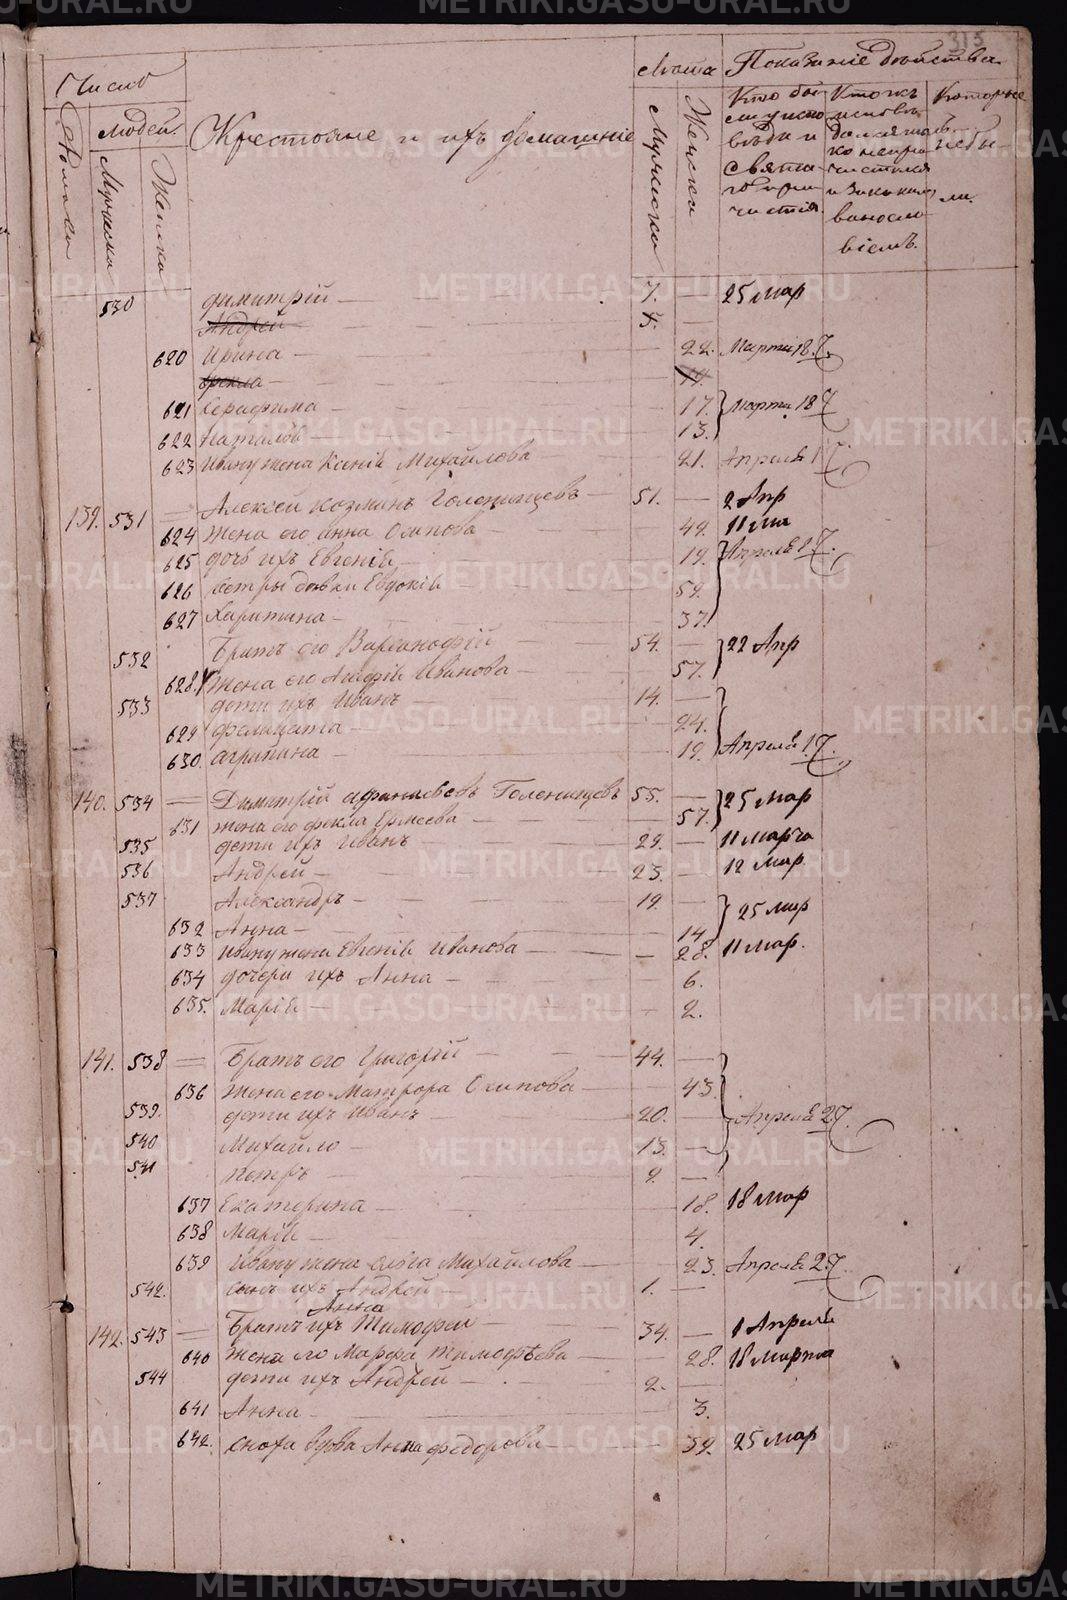 315
Число
Людей.
Домовъ
Мужеска
Женска
Крестояне и ихъ домашніе
Лѣта
Мужеска
Женска
Показаніе двойства
Которые
небы-
ли.
530 Димитрій — 7. — 25 Мар
Андрей — 5.
620 Ирина — 22. Марта 18 7.
Фекла — 19.
621 Серафима — 17. Марта 18 7
622 Наталія — 13.
623 Ивану жена Ксенія Михайлова 21. Апреля 1 7.
139. 531 — Алексей Козминъ Голенищевъ — 51. — 2 Апр
624 Жена его Анна Осипова 49. 11 Ма
625 дочь ихъ Евгенія 19. Апреля 17.
626 Сестры девки Евдокія 59.
627 Харитина — 37.
532 Братъ его Варсанофій 54. — 22 Апр
628. Жена его Ивановa — 57.
533 дети ихъ Иванъ 14. —
629 Фелицата — 24.
630. Агрипина 19. Апреля 17.
140. 534 — Димитрій Афанасьевъ Голенищевъ 55. — 25 Мар
631 жена его Фекла Ермеева — 57.
535 дети ихъ Иванъ 29. — 11 Марта
536 Андрей — 23. — 12 Мар.
537 Александръ — 19. — 25 Мар
632 Анна — 14
633 Ивану жена Евгенія Иванова — 28. 11 Мар.
634 дочери ихъ Анна — 6.
635. Марія — 2.
141. 538 — Братъ его Григорій 44. —
636 Жена его Матрона Осипова — 43.
539. дети ихъ Иванъ 20. — Апреля 27.
540 Михайло — 13. —
541 Петръ — 9. —
637 Екатерина — 18. 18 Мар
638 Марія — 4.
639 Ивану жена Ольга Михайлова 23. Апреля 27.
542. сынъ ихъ Андрей 1. —
Анна
142. 543 — Братъ ихъ Тимофей — 34. — 1 Апреля
640 жена его Марфа Тимофѣева — 28. 18 Марта
544 дети ихъ Андрей — 2. —
641 Анна — 3.
642. сноха вдова Анна Федорова 39. 25 Мар
METRIKI.GASO-URAL.RU